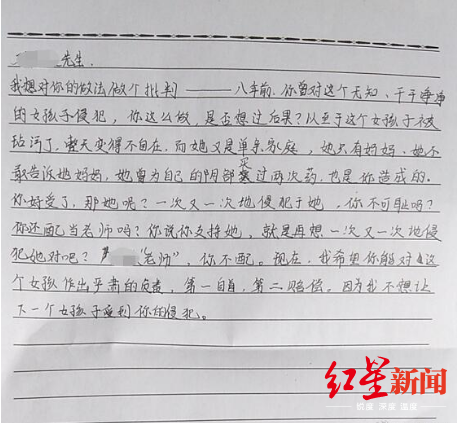 先生.
我想对你的做法做个批判——八年前.你曾对这个无知、干干净净
的女孩子侵犯，你这么做，是否想过后果？以至于这个女孩子被
玷污了.整天变得不自在.而她又是单亲家庭，她只有妈妈、她不
敢告诉她妈妈，她曾为自己的阴部过两次药.也是你造成的.
你好受了，那她呢？一次又一次地侵犯于她，你不可耻吗？
你还配当老师吗？你说你支持她，就是再想一次又一次地侵
犯她对吧？"老师"，你不配。现在，我希望你能对这
个女孩作出严肃的负责，第一自首，第二赔偿。因为我不想让
下一个女孩子受到你的侵犯。
红星新闻
锐度 深度 温度